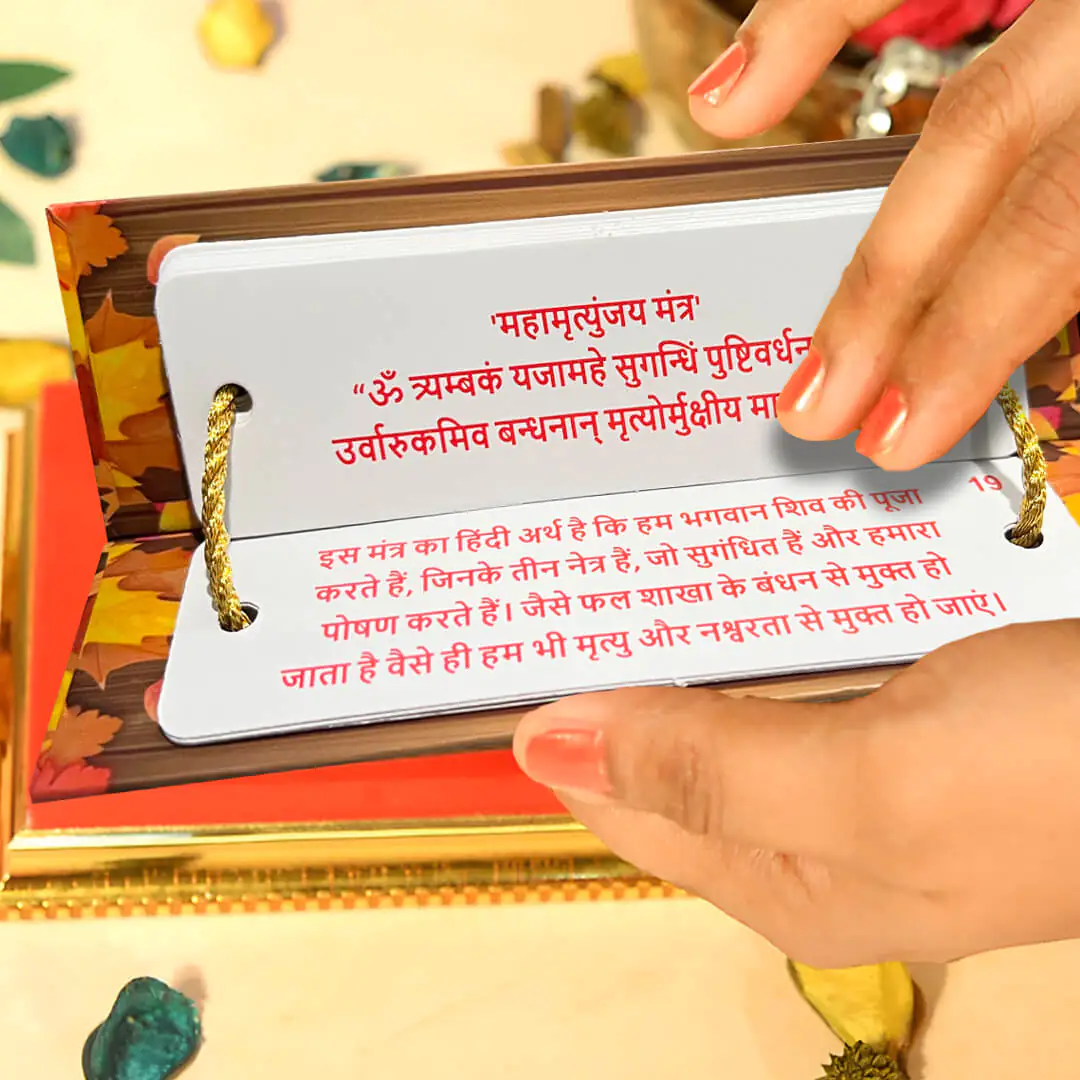 'महामृत्युंजय मंत्र'
“ॐ त्र्यम्बकं यजामहे सुगन्धिं
उर्वारुकमिव बन्धनान् मृत्योर्मुक्षीय
19
इस मंत्र का हिंदी अर्थ है कि हम भगवान शिव की पूजा
करते हैं, जिनके तीन नेत्र हैं, जो सुगंधित हैं और हमारा
पोषण करते हैं। जैसे फल शाखा के बंधन से मुक्त हो
जाता है वैसे ही हम भी मृत्यु और नश्वरता से मुक्त हो जाएं।